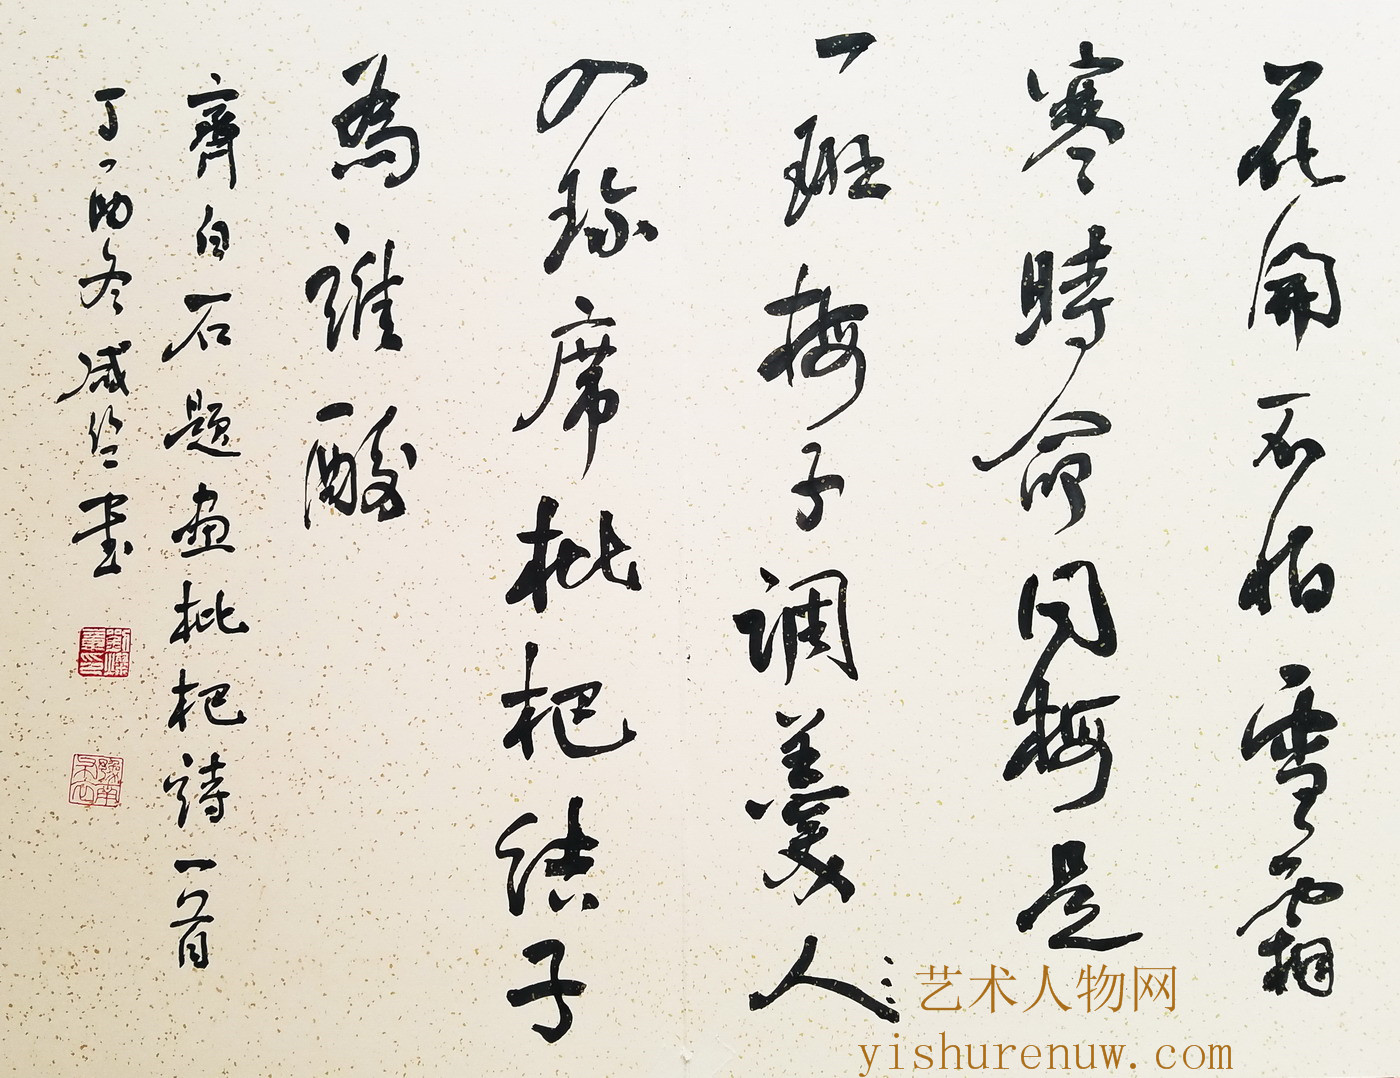 花開不怕雪霜
寒時命同梅是
一班梅子調羹人
入珍席枇杷結子
為誰酸
齊白石題畫枇杷詩一首
丁酉冬 書
艺术人物网
yishurenuw.com